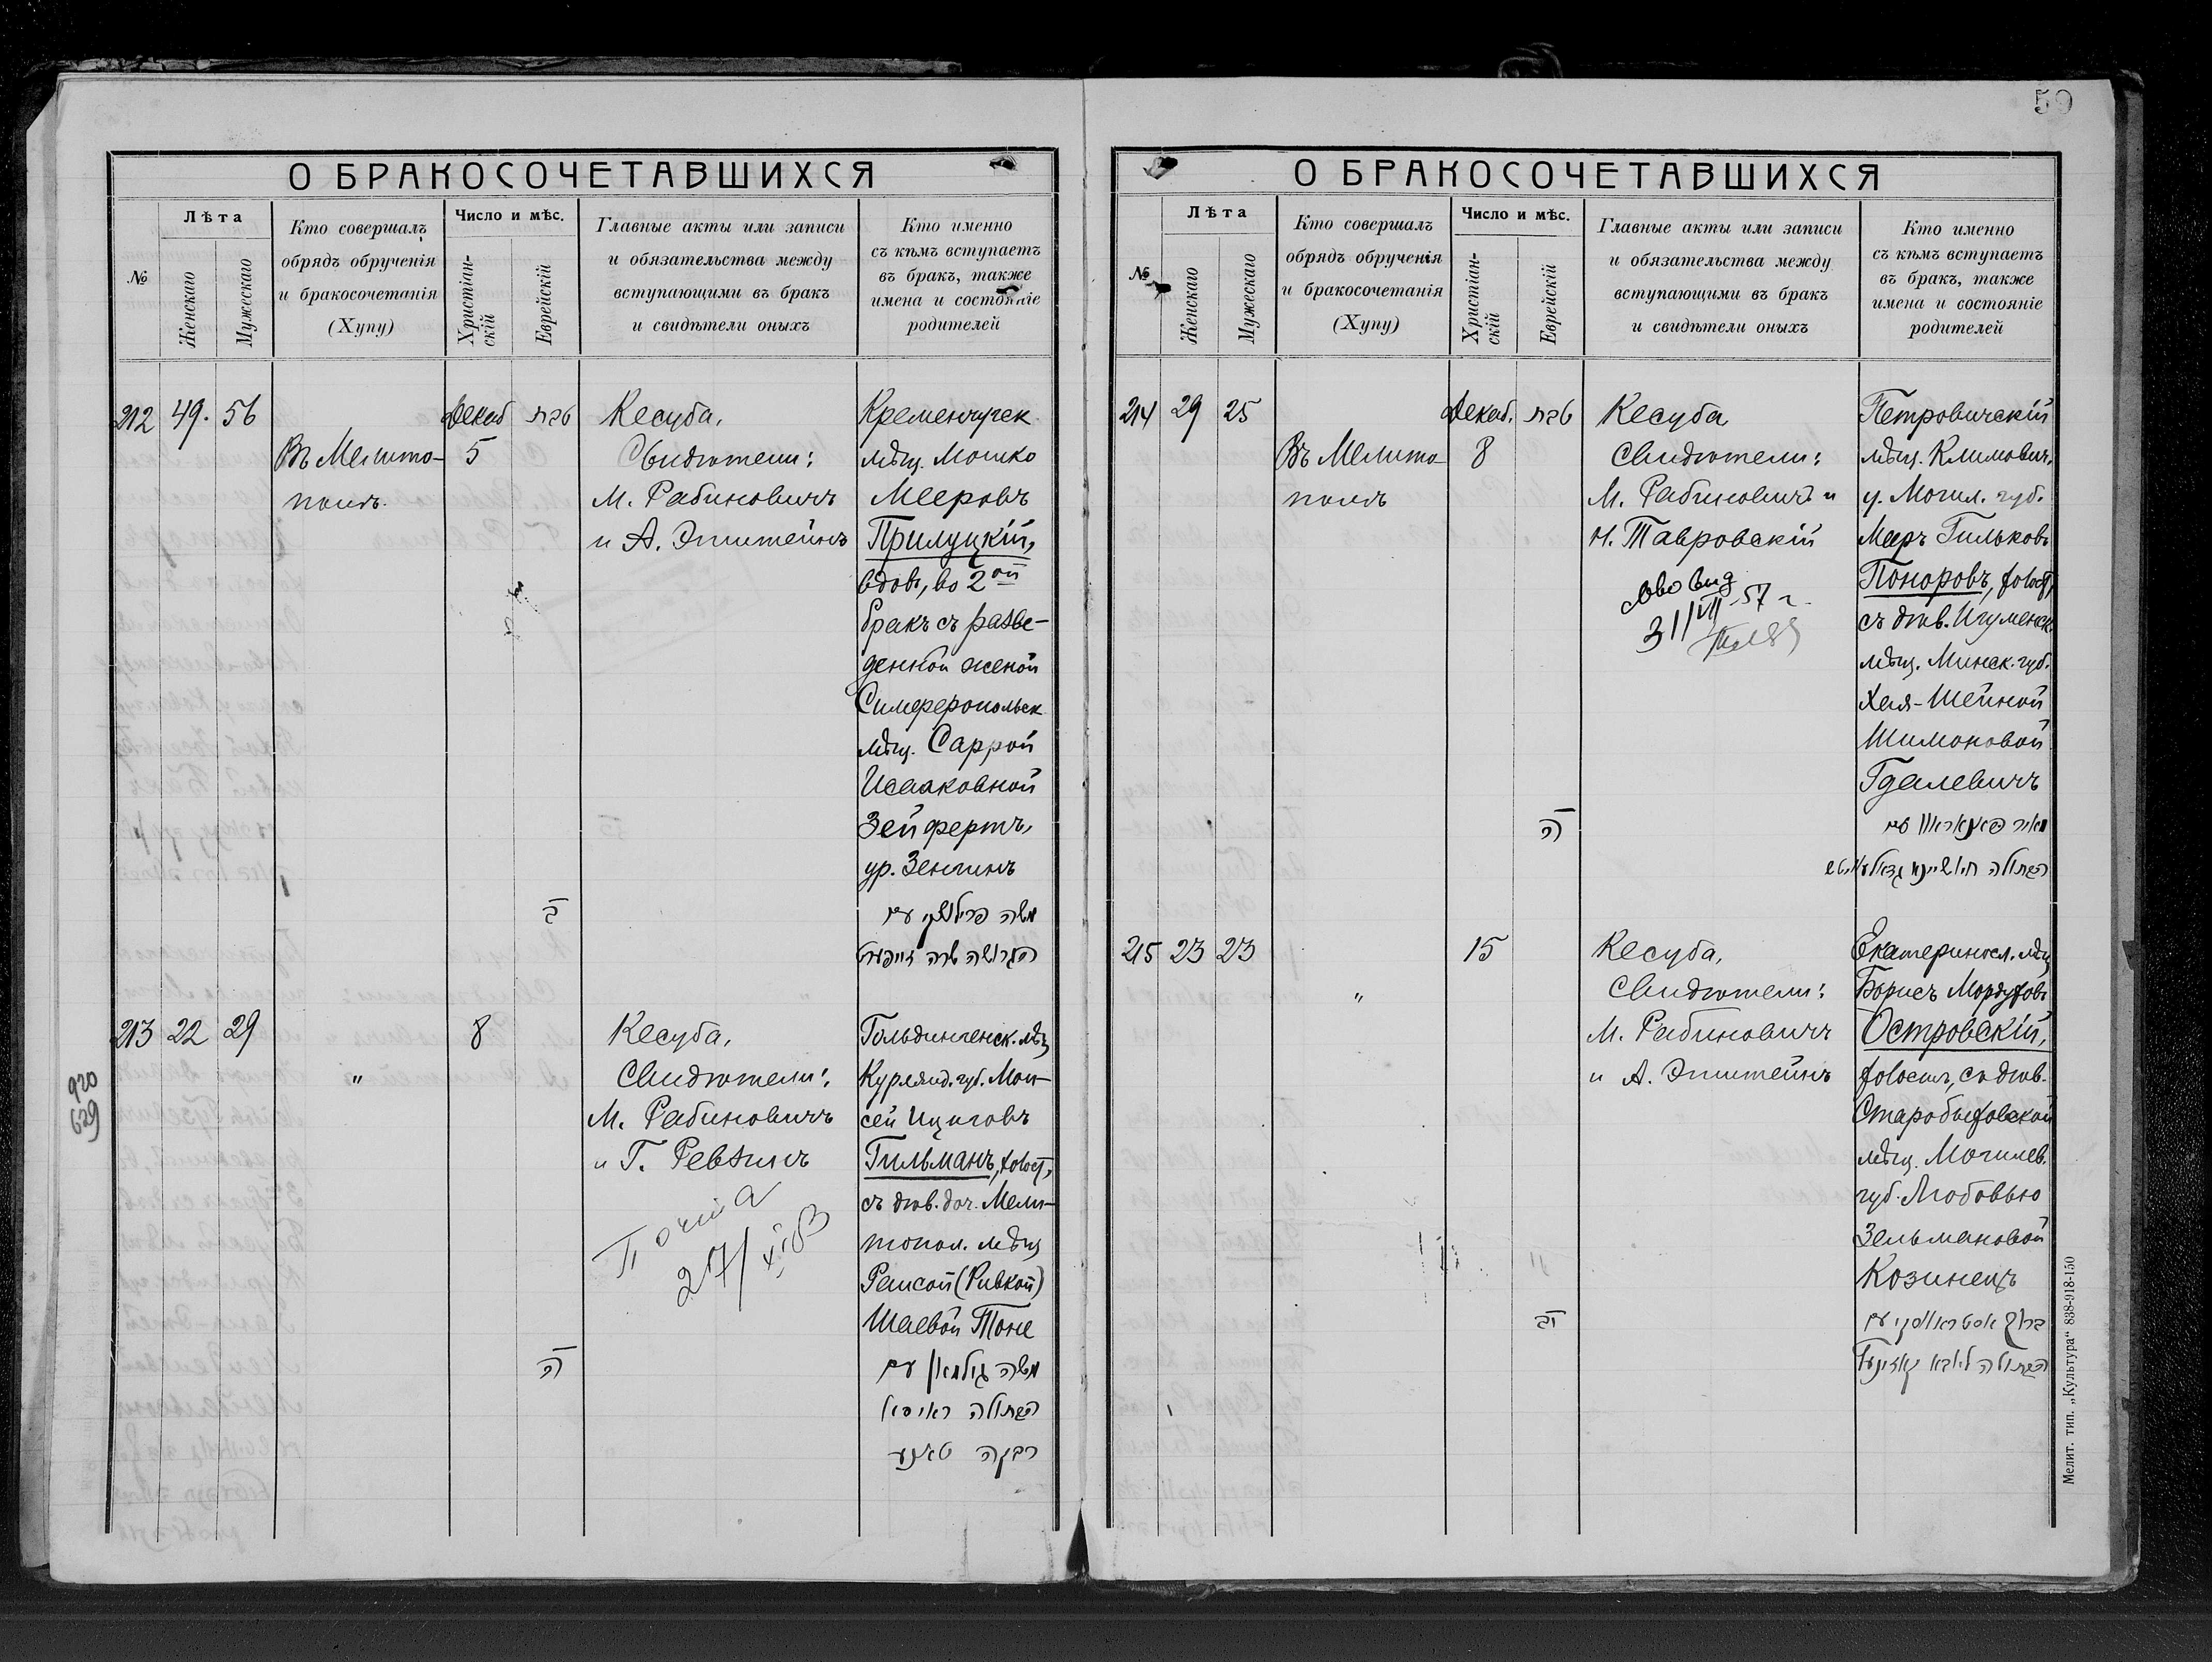 59
О БРАКОСОЧЕТАВШИХСЯ
№
Лѣта
Женскаго
Мужескаго
Кто совершалъ
обрядъ обрученія
и бракосочетанія
(Хупу)
Число и мѣс.
Христіан-
скій
Еврейскій
Главные акты или записи
и обязательства между
вступающими въ бракъ
и свидѣтели оныхъ
Кто именно
съ кѣмъ вступаетъ
въ бракъ, также
имена и состояніе
родителей
212 49. 56
Въ Мелито-
полѣ.
Декаб
5
טבת
ב
Кесуба,
Свидѣтели:
М. Рабиновичъ
и А. Эпштейнъ
Кременчугск.
мѣщ. Мошко
Мееровъ
Прилуцкій,
вдов, во 2ой
бракъ съ разве-
денной женой
Симферопольск.
мѣщ. Саррой
Исааковной
Зейфертъ,
ур. Зенгинъ
משה פרילוצקי עם
הגרושה שרה זייפערט
213 22 29
"
8
ה
Кесуба,
Свидѣтели:
М. Рабиновичъ
и Г. Ревзинъ
27/XI 63
Гольдингенск. мѣщ
Курлянд. губ. Мои-
сей Ициговъ
Гильманъ, холост,
съ дѣв. доч. Мели-
топол. мѣщ
Раисой (Ривкой)
Шаевой Тоне
משה גילמאן עם
הבתולה ראיסא
רבקה טאנע
920
629
О БРАКОСОЧЕТАВШИХСЯ
№
Лѣта
Женскаго
Мужескаго
Кто совершалъ
обрядъ обрученія
и бракосочетанія
(Хупу)
Число и мѣс.
Христіан-
скій
Еврейскій
Главные акты или записи
и обязательства между
вступающими въ бракъ
и свидѣтели оныхъ
Кто именно
съ кѣмъ вступаетъ
въ бракъ, также
имена и состояніе
родителей
214 29 25
Въ Мелито-
полѣ
Декаб.
8
טבת
ה
Кесуба
Свидѣтели:
М. Рабиновичъ и
Н. Тавровскій
31/VII-57 г.
Петровичскій
мѣщ. Климович.
у. Могил. губ.
Меръ Гильковъ
Поноровъ, холост,
съ дѣв. Игуменск.
мѣщ. Минск. губ.
Хая-Шейной
Шимоновой
Гдалевичъ
הבתולה חי׳ שיינא גדאלעוויטש
215 23 23
"
15
יב
Кесуба,
Свидѣтели:
М. Рабиновичъ
и А. Эпштейнъ
Екатериносл. мѣщ
Борисъ Мордуховъ
Островскій,
холост, съ дѣв.
Старобыховской
мѣщ. Могилев.
губ. Любовью
Зельмановой
Козинецъ
ברוך אסטראווסקי עם
הבתולה ליובא קאזינעץ
Мелит. тип. „Культура“ 838-918-150